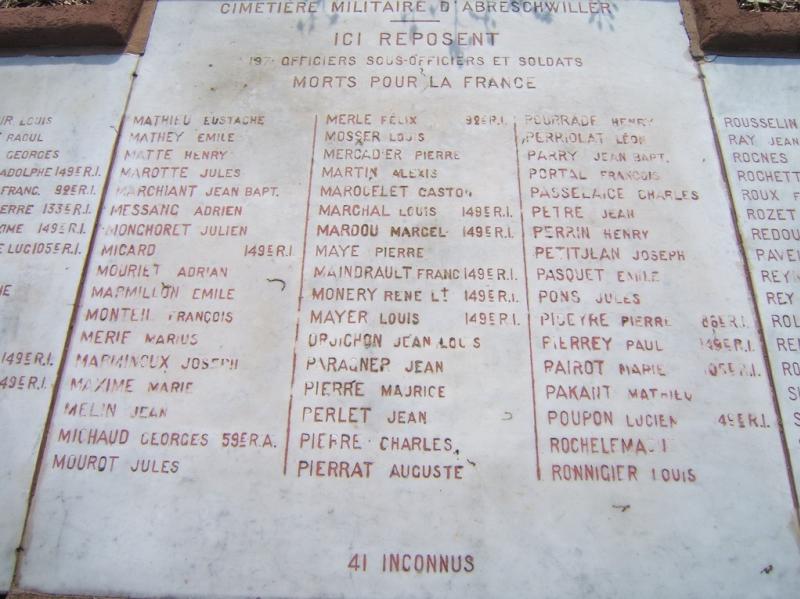 CIMETIÈRE MILITAIRE D'ABRESCHWILLER
ICI REPOSENT
197 OFFICIERS SOUS-OFFICIERS ET SOLDATS
MORTS POUR LA FRANCE
LOUIS
RAOUL
GEORGES
ADOLPHE 149E R.I.
FRANC. 99E R.I.
133E R.I.
149E R.I.
LUC 105E R.I.
149E R.I.
149E R.I.
MATHIEU EUSTACHE
MATHEY EMILE
MATTE HENRY
MAROTTE JULES
MARCHANT JEAN BAPT.
MESSANG ADRIEN
MONCHORET JULIEN
MICARD 149E R.I.
MOURIET ADRIAN
MARMILLON EMILE
MONTEIL FRANÇOIS
MERIF MARIUS
MARMINOUX JOSEPH
MAXIME MARIE
MELIN JEAN
MICHAUD GEORGES 59E R.A.
MOUROT JULES
MERLE FÉLIX 99E R.I.
MOSSER LOUIS
MERCADIER PIERRE
MARTIN ALEXIS
MARQUELET GASTON
MARCHAL LOUIS 149E R.I.
MARDOU MARCEL 149E R.I.
MAYE PIERRE
MAINDRAULT FRANC 149E R.I.
MONERY RENE LT 149E R.I.
MAYER LOUIS 149E R.I.
JEAN LOUIS
PARAGNER JEAN
PIERRE MAURICE
PERLET JEAN
PIERRE CHARLES
PIERRAT AUGUSTE
POURRADE HENRY
PERRIOLAT LÉON
PARRY JEAN BAPT.
PORTAL FRANÇOIS
PASSELAIGE CHARLES
PETRE JEAN
PERRIN HENRY
PETITJEAN JOSEPH
PASQUET EMILE
PONS JULES
PIBEYRE PIERRE R.I.
PIERREY PAUL 149E R.I.
PAIROT MARIE R.I.
PAKANT MATHIEU
POUPON LUCIEN 49E R.I.
RONNIGIER LOUIS
ROUSSELIN
RAY JEAN
ROGNES
ROCHETT
ROUX
ROZET
REDOU
41 INCONNUS